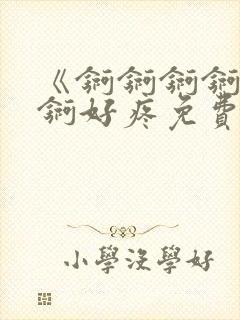 《锕锕锕锕
锕好疼免費
小學沒學好